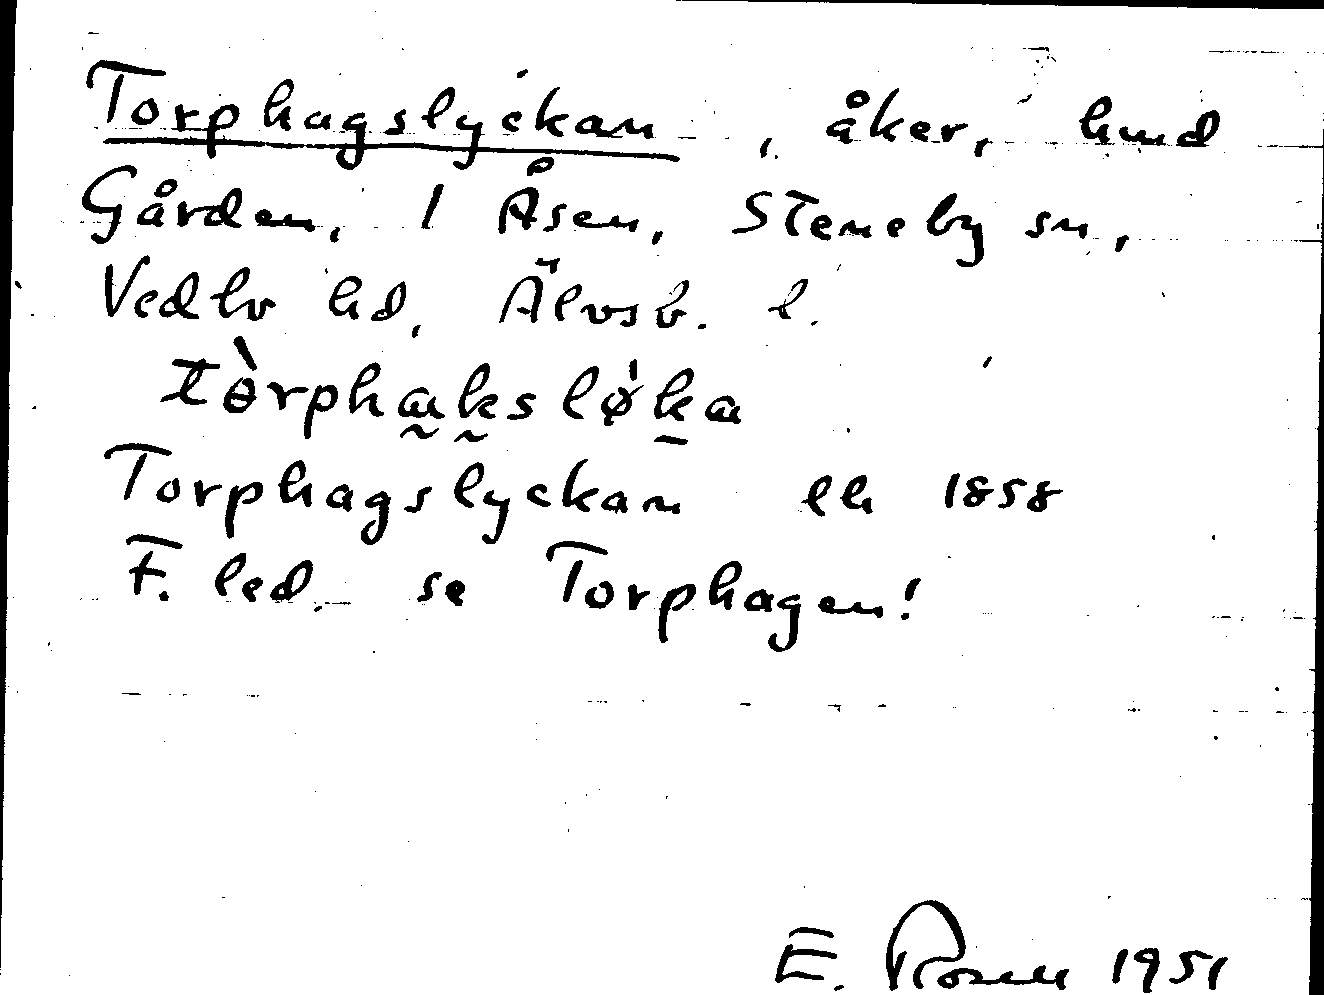 Torphagslyckan, åker, hmd
Gården, 1 Åsen, Steneby sn,
Vedbo hd, Älvsb. l.
tòrphaksløka
Torphagslyckan lh 1858
F. led. se Torphagen!
E. Rosell 1951